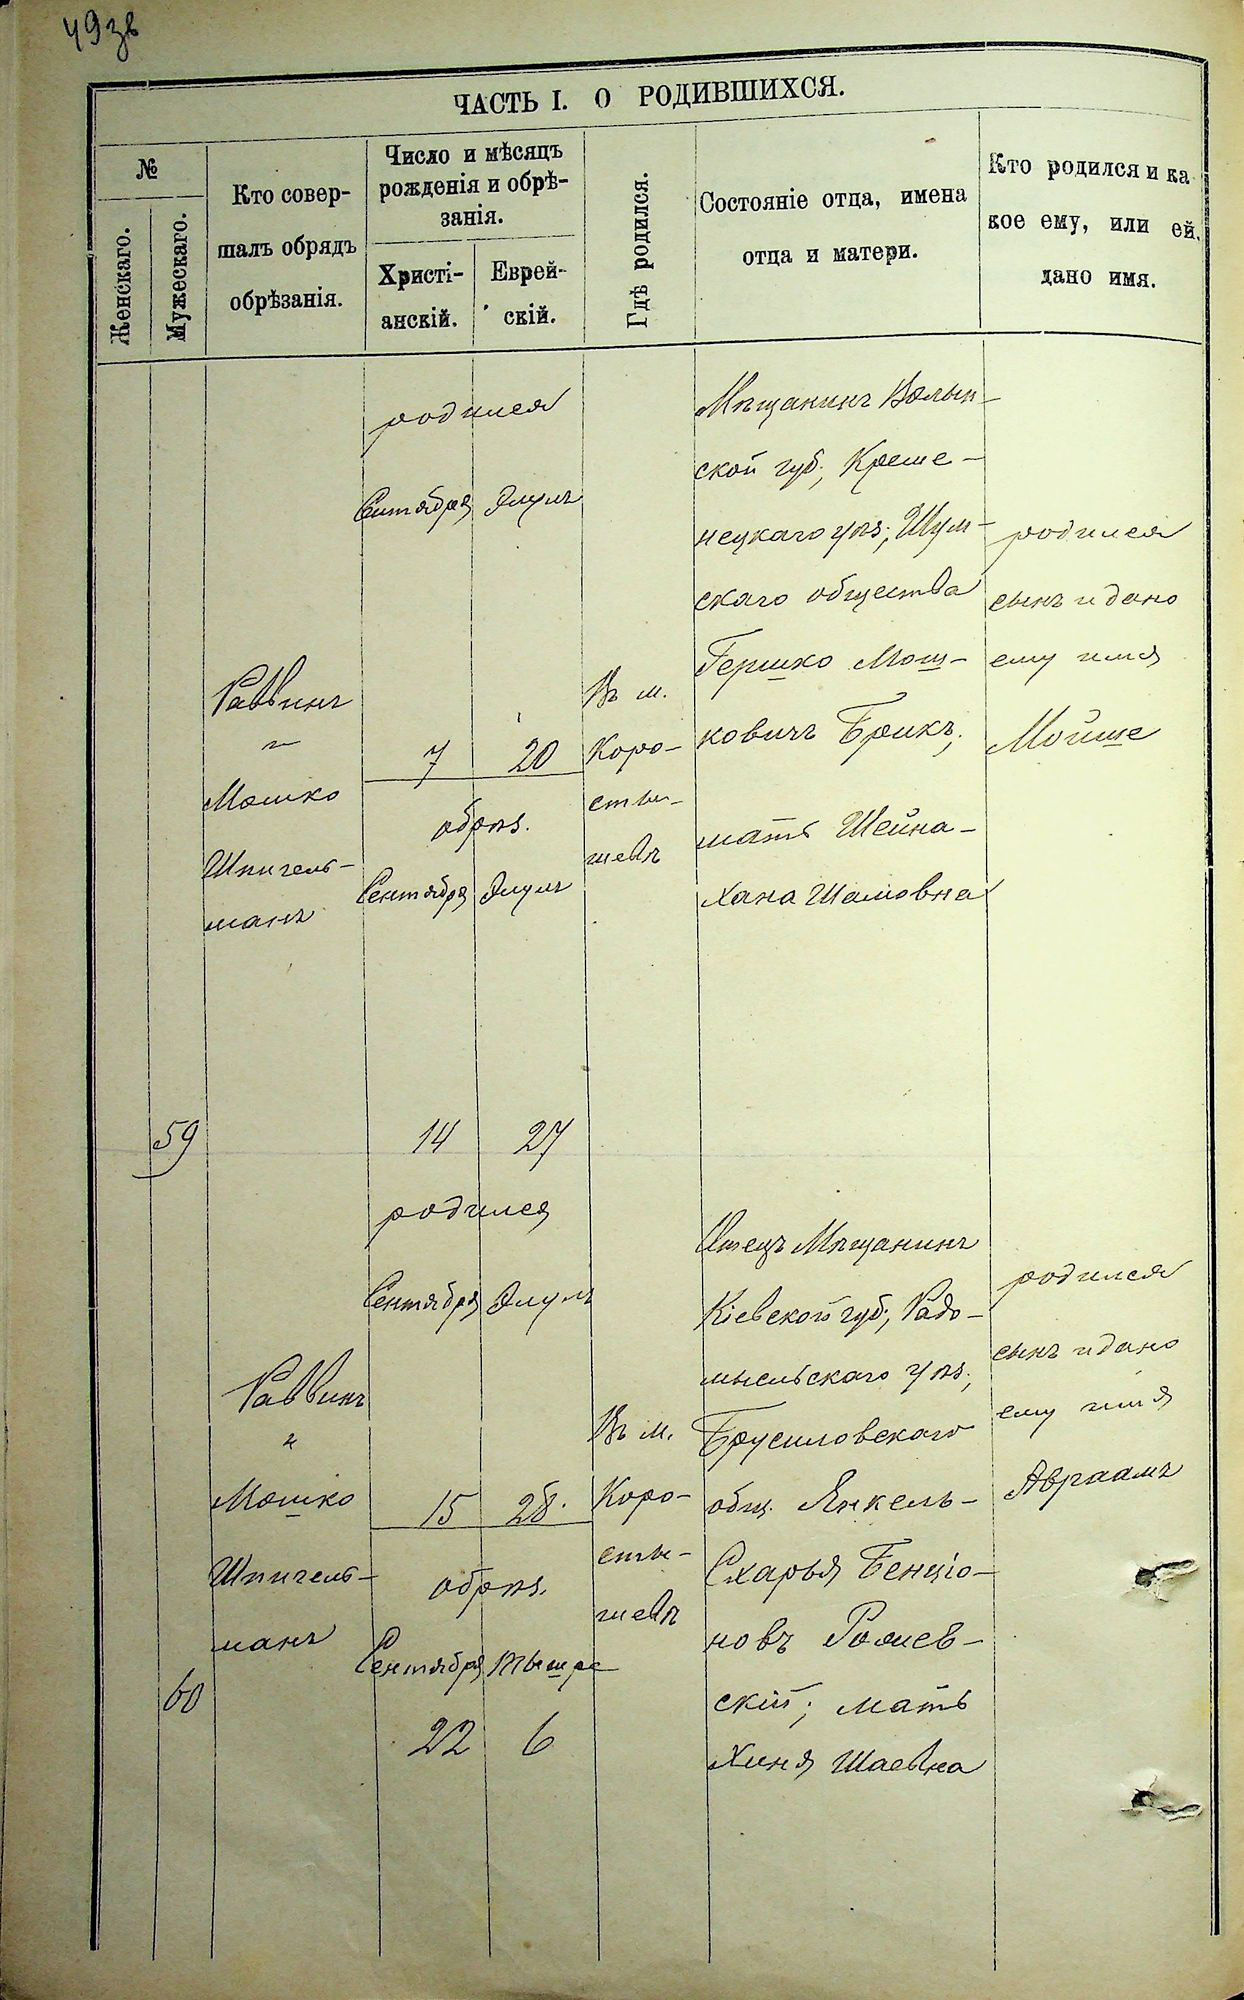 49зв
ЧАСТЬ I. О РОДИВШИХСЯ.
№
Женскаго.
Мужескаго.
Кто совер-
шалъ обрядъ
обрѣзанія.
Число и мѣсяцъ
рожденія и обрѣ-
занія.
Христі-
анскій.
Еврей-
скій.
Гдѣ родился.
Состояніе отца, имена
отца и матери.
Кто родился и ка
кое ему, или ей,
дано имя.
59
Раввинъ
Мошко
Шпигель-
манъ
родился
Сентября Элулъ
7 20
обрѣз.
Сентября Элулъ
14 27
Въ м.
Коро-
сты-
шевѣ
Мѣщанинъ Волын-
ской губ., Креме-
нецкаго уѣз., Шум-
скаго общества
Гершко Мош-
ковичъ Брикъ,
мать Шейна-
Хана Шамовна
родился
сынъ и дано
ему имя
Мойше
60
Раввинъ
Мошко
Шпигель-
манъ
родился
Сентября Элулъ
15 28.
обрѣз.
Сентября Тышре
22 6
Въ м.
Коро-
сты-
шевѣ
Отецъ Мѣщанинъ
Кіевской губ., Радо-
мысльскаго уѣз.,
Брусиловскаго
общ. Янкель-
Схарья Бенціо-
новъ
скій; мать
Хиня Шаевна
родился
сынъ и дано
ему имя
Авраамъ